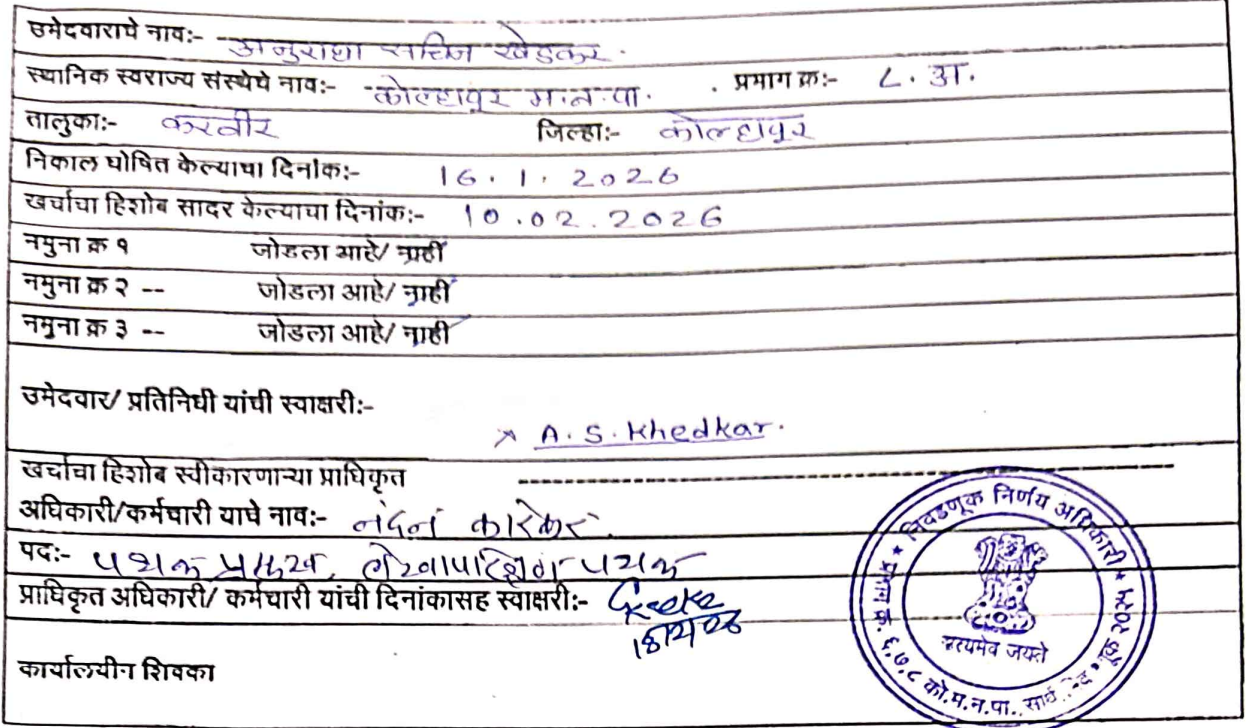 उमेदवाराचे नाव:- अनुराधा सचिन खेडकर.
स्थानिक स्वराज्य संस्थेचे नाव:- कोल्हापूर म.न.पा. . प्रमाग क्र:- ८. अ.
तालुका:- करवीर जिल्हा:- कोल्हापूर
निकाल घोषित केल्याचा दिनांक:- 16.1.2026
खर्चाचा हिशोब सादर केल्याचा दिनांक:- 10.02.2026
नमुना क्र १ जोडला आहे/ नाही
नमुना क्र २ -- जोडला आहे/ नाही
नमुना क्र ३ -- जोडला आहे/ नाही
उमेदवार/ प्रतिनिधी यांची स्वाक्षरी:-
A. S. Khedkar.
खर्चाचा हिशोब स्वीकारणाऱ्या प्राधिकृत
अधिकारी/कर्मचारी याचे नाव:- नंदन कारेकर
पद:- पथक प्रमुख, लेखापरिक्षण पथक
प्राधिकृत अधिकारी/ कर्मचारी यांची दिनांकसह स्वाक्षरी:-
कार्यालयीन शिक्का
निवडणूक निर्णय अधिकारी
प्रभाग क्र. ६,७,८ को.म.न.पा.
सत्यमेव जयते